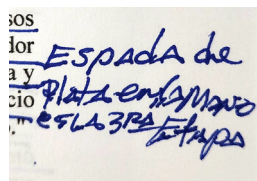 sos
dor
a y
cio
."
Espada de
Plata en la mano
es la 3ra Etapa